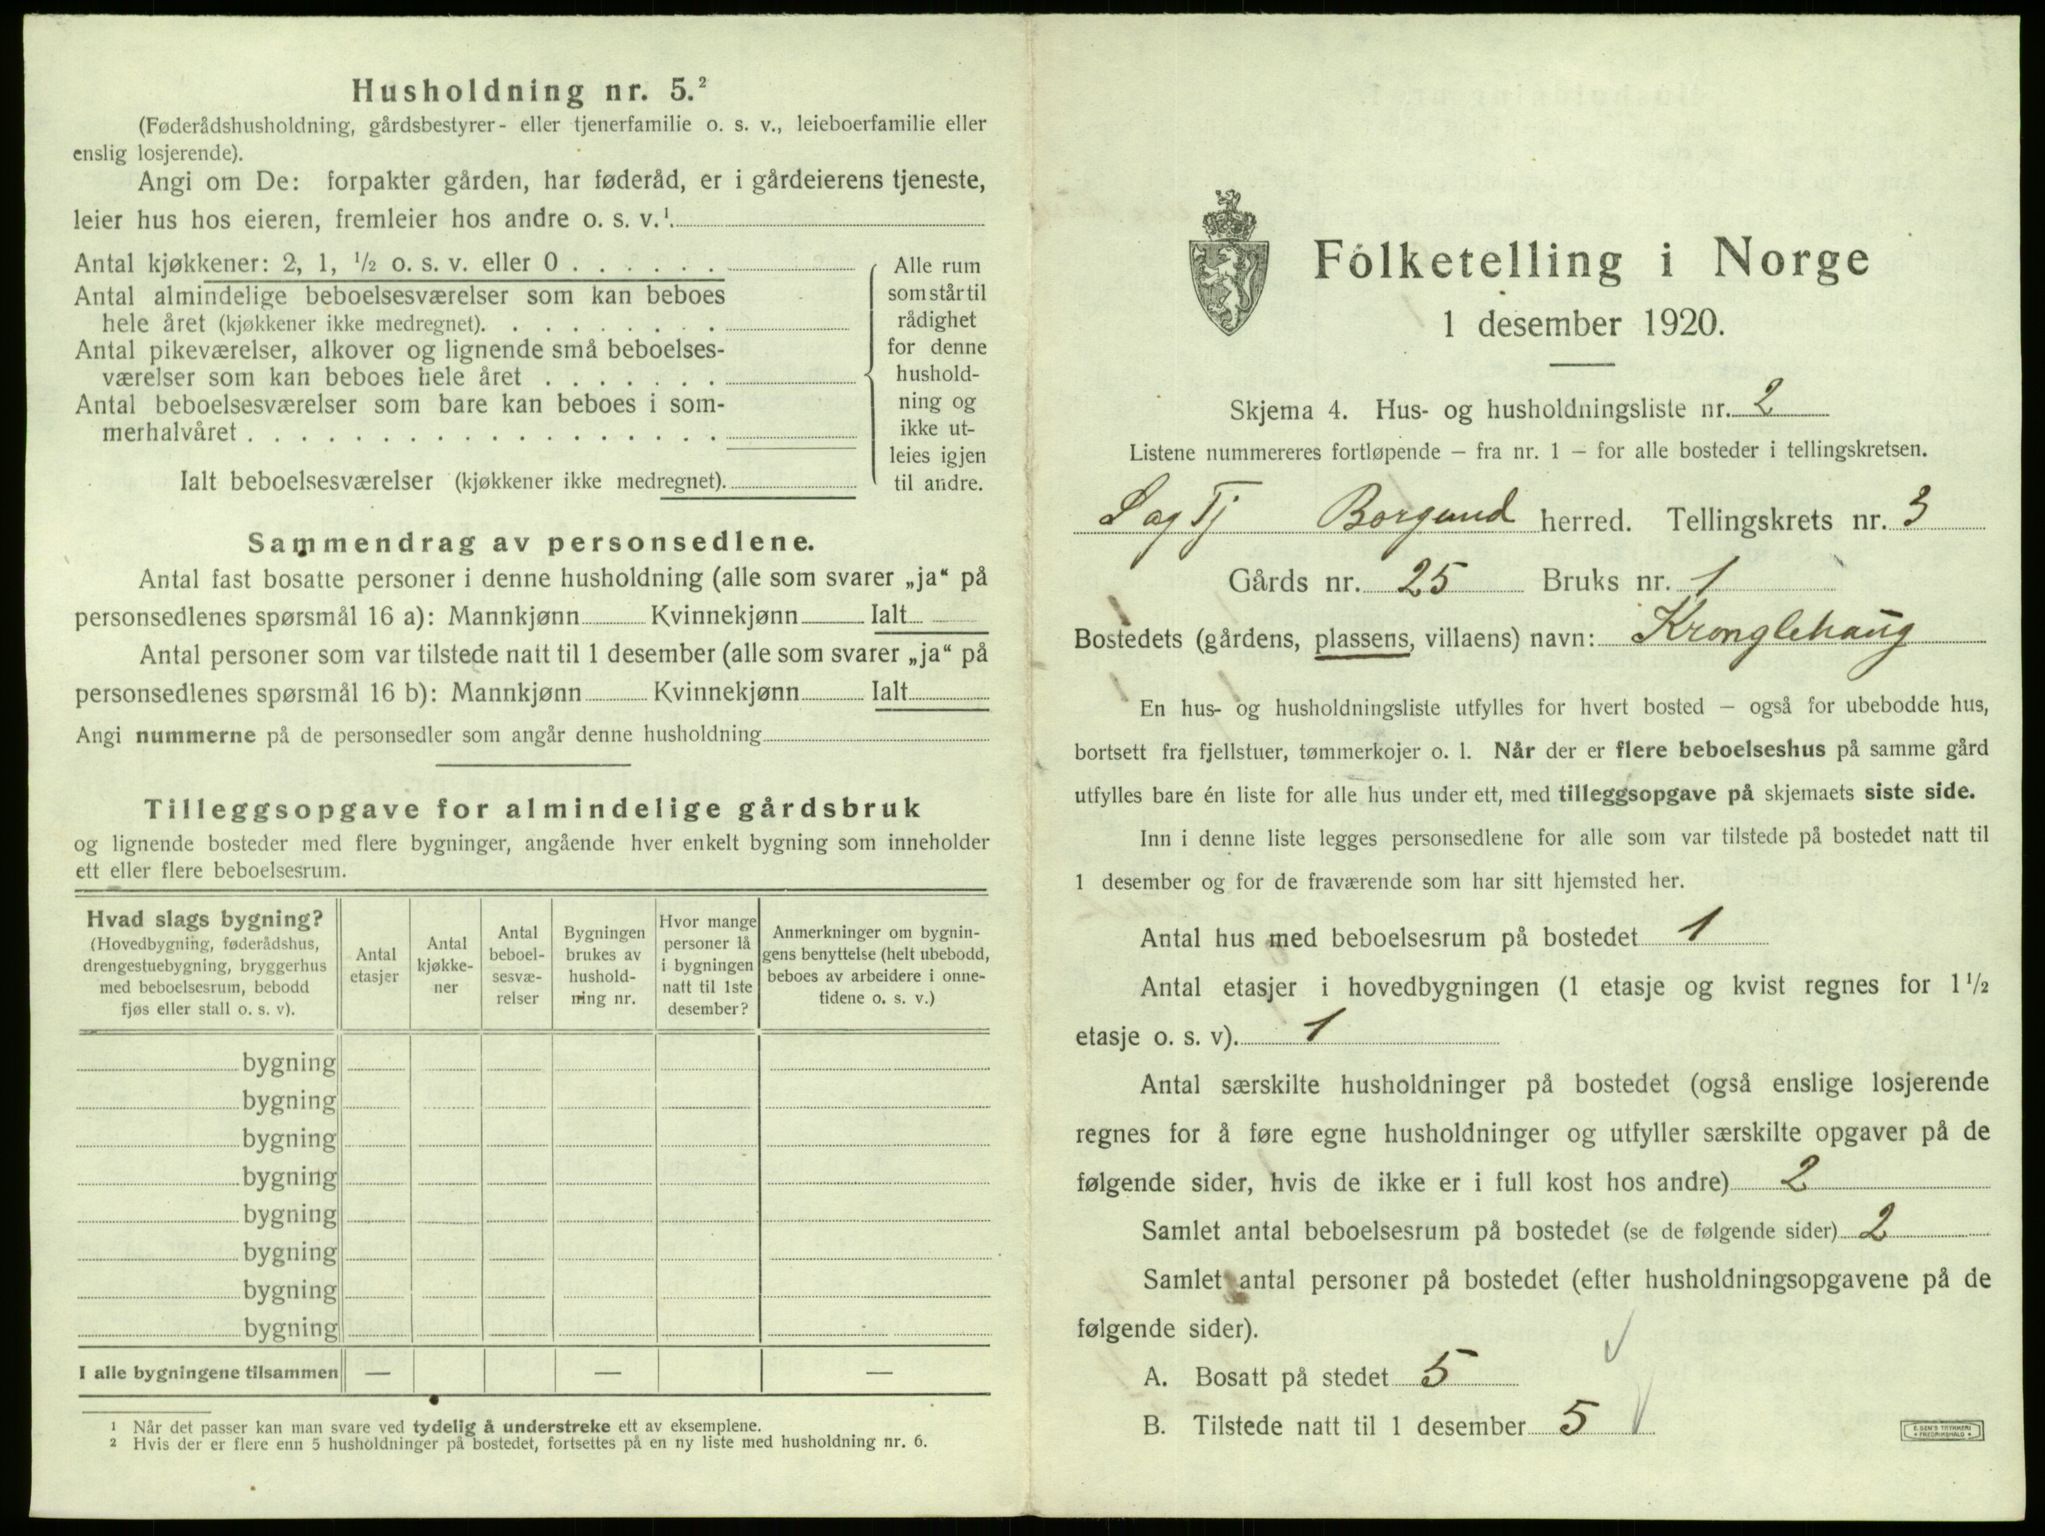 Husholdning nr. 5.²
(Føderådshusholdning, gårdsbestyrer- eller tjenerfamilie o. s. v., leieboerfamilie eller
enslig losjerende).
Angi om De: forpakter gården, har føderåd, er i gårdeierens tjeneste,
leier hus hos eieren, fremleier hos andre o. s. v.¹
Antal kjøkkener: 2, 1, ½ o. s. v. eller 0
Antal almindelige beboelsesværelser som kan beboes
hele året (kjøkkener ikke medregnet).
Antal pikeværelser, alkover og lignende små beboelses-
værelser som kan beboes hele året
Antal beboelsesværelser som bare kan beboes i som-
merhalvåret
Ialt beboelsesværelser (kjøkkener ikke medregnet).
Alle rum
som står til
rådighet
for denne
hushold-
ning og
ikke ut-
leies igjen
til andre.
Sammendrag av personsedlene.
Antal fast bosatte personer i denne husholdning (alle som svarer „ja“ på
personsedlenes spørsmål 16 a): Mannkjønn Kvinnekjønn Ialt
Antal personer som var tilstede natt til 1 desember (alle som svarer „ja“ på
personsedlenes spørsmål 16 b): Mannkjønn Kvinnekjønn Ialt
Angi nummerne på de personsedler som angår denne husholdning
Tilleggsopgave for almindelige gårdsbruk
og lignende bosteder med flere bygninger, angående hver enkelt bygning som inneholder
ett eller flere beboelsesrum.
Hvad slags bygning?
(Hovedbygning, føderådshus,
drengestuebygning, bryggerhus
med beboelsesrum, bebodd
fjøs eller stall o. s. v).
Antal
etasjer
Antal
kjøkke-
ner
Antal
beboel-
sesvæ-
relser
Bygningen
brukes av
hushold-
ning nr.
Hvor mange
personer lå
i bygningen
natt til 1ste
desember?
Anmerkninger om bygnin-
gens benyttelse (helt ubebodd,
beboes av arbeidere i onne-
tidene o. s. v.)
bygning
bygning
bygning
bygning
bygning
bygning
bygning
bygning
I alle bygningene tilsammen — — —
¹ Når det passer kan man svare ved tydelig å understreke ett av eksemplene.
² Hvis der er flere enn 5 husholdninger på bostedet, fortsettes på en ny liste med husholdning nr. 6.
Folketelling i Norge
1 desember 1920.
Skjema 4. Hus- og husholdningsliste nr. 2
Listene nummereres fortløpende – fra nr. 1 – for alle bosteder i tellingskretsen.
S og Fj Borgund herred. Tellingskrets nr. 3
Gårds nr. 25 Bruks nr. 1
Bostedets (gårdens, plassens, villaens) navn: Kronglehaug
En hus- og husholdningsliste utfylles for hvert bosted – også for ubebodde hus,
bortsett fra fjellstuer, tømmerkojer o. l. Når der er flere beboelseshus på samme gård
utfylles bare én liste for alle hus under ett, med tilleggsopgave på skjemaets siste side.
Inn i denne liste legges personsedlene for alle som var tilstede på bostedet natt til
1 desember og for de fraværende som har sitt hjemsted her.
Antal hus med beboelsesrum på bostedet 1
Antal etasjer i hovedbygningen (1 etasje og kvist regnes for 1½
etasje o. s. v). 1
Antal særskilte husholdninger på bostedet (også enslige losjerende
regnes for å føre egne husholdninger og utfyller særskilte opgaver på de
følgende sider, hvis de ikke er i full kost hos andre) 2
Samlet antal beboelsesrum på bostedet (se de følgende sider) 2
Samlet antal personer på bostedet (efter husholdningsopgavene på de
følgende sider).
A. Bosatt på stedet 5
B. Tilstede natt til 1 desember 5
E. SEM'S TRYKKERI
FREDRIKSHALD